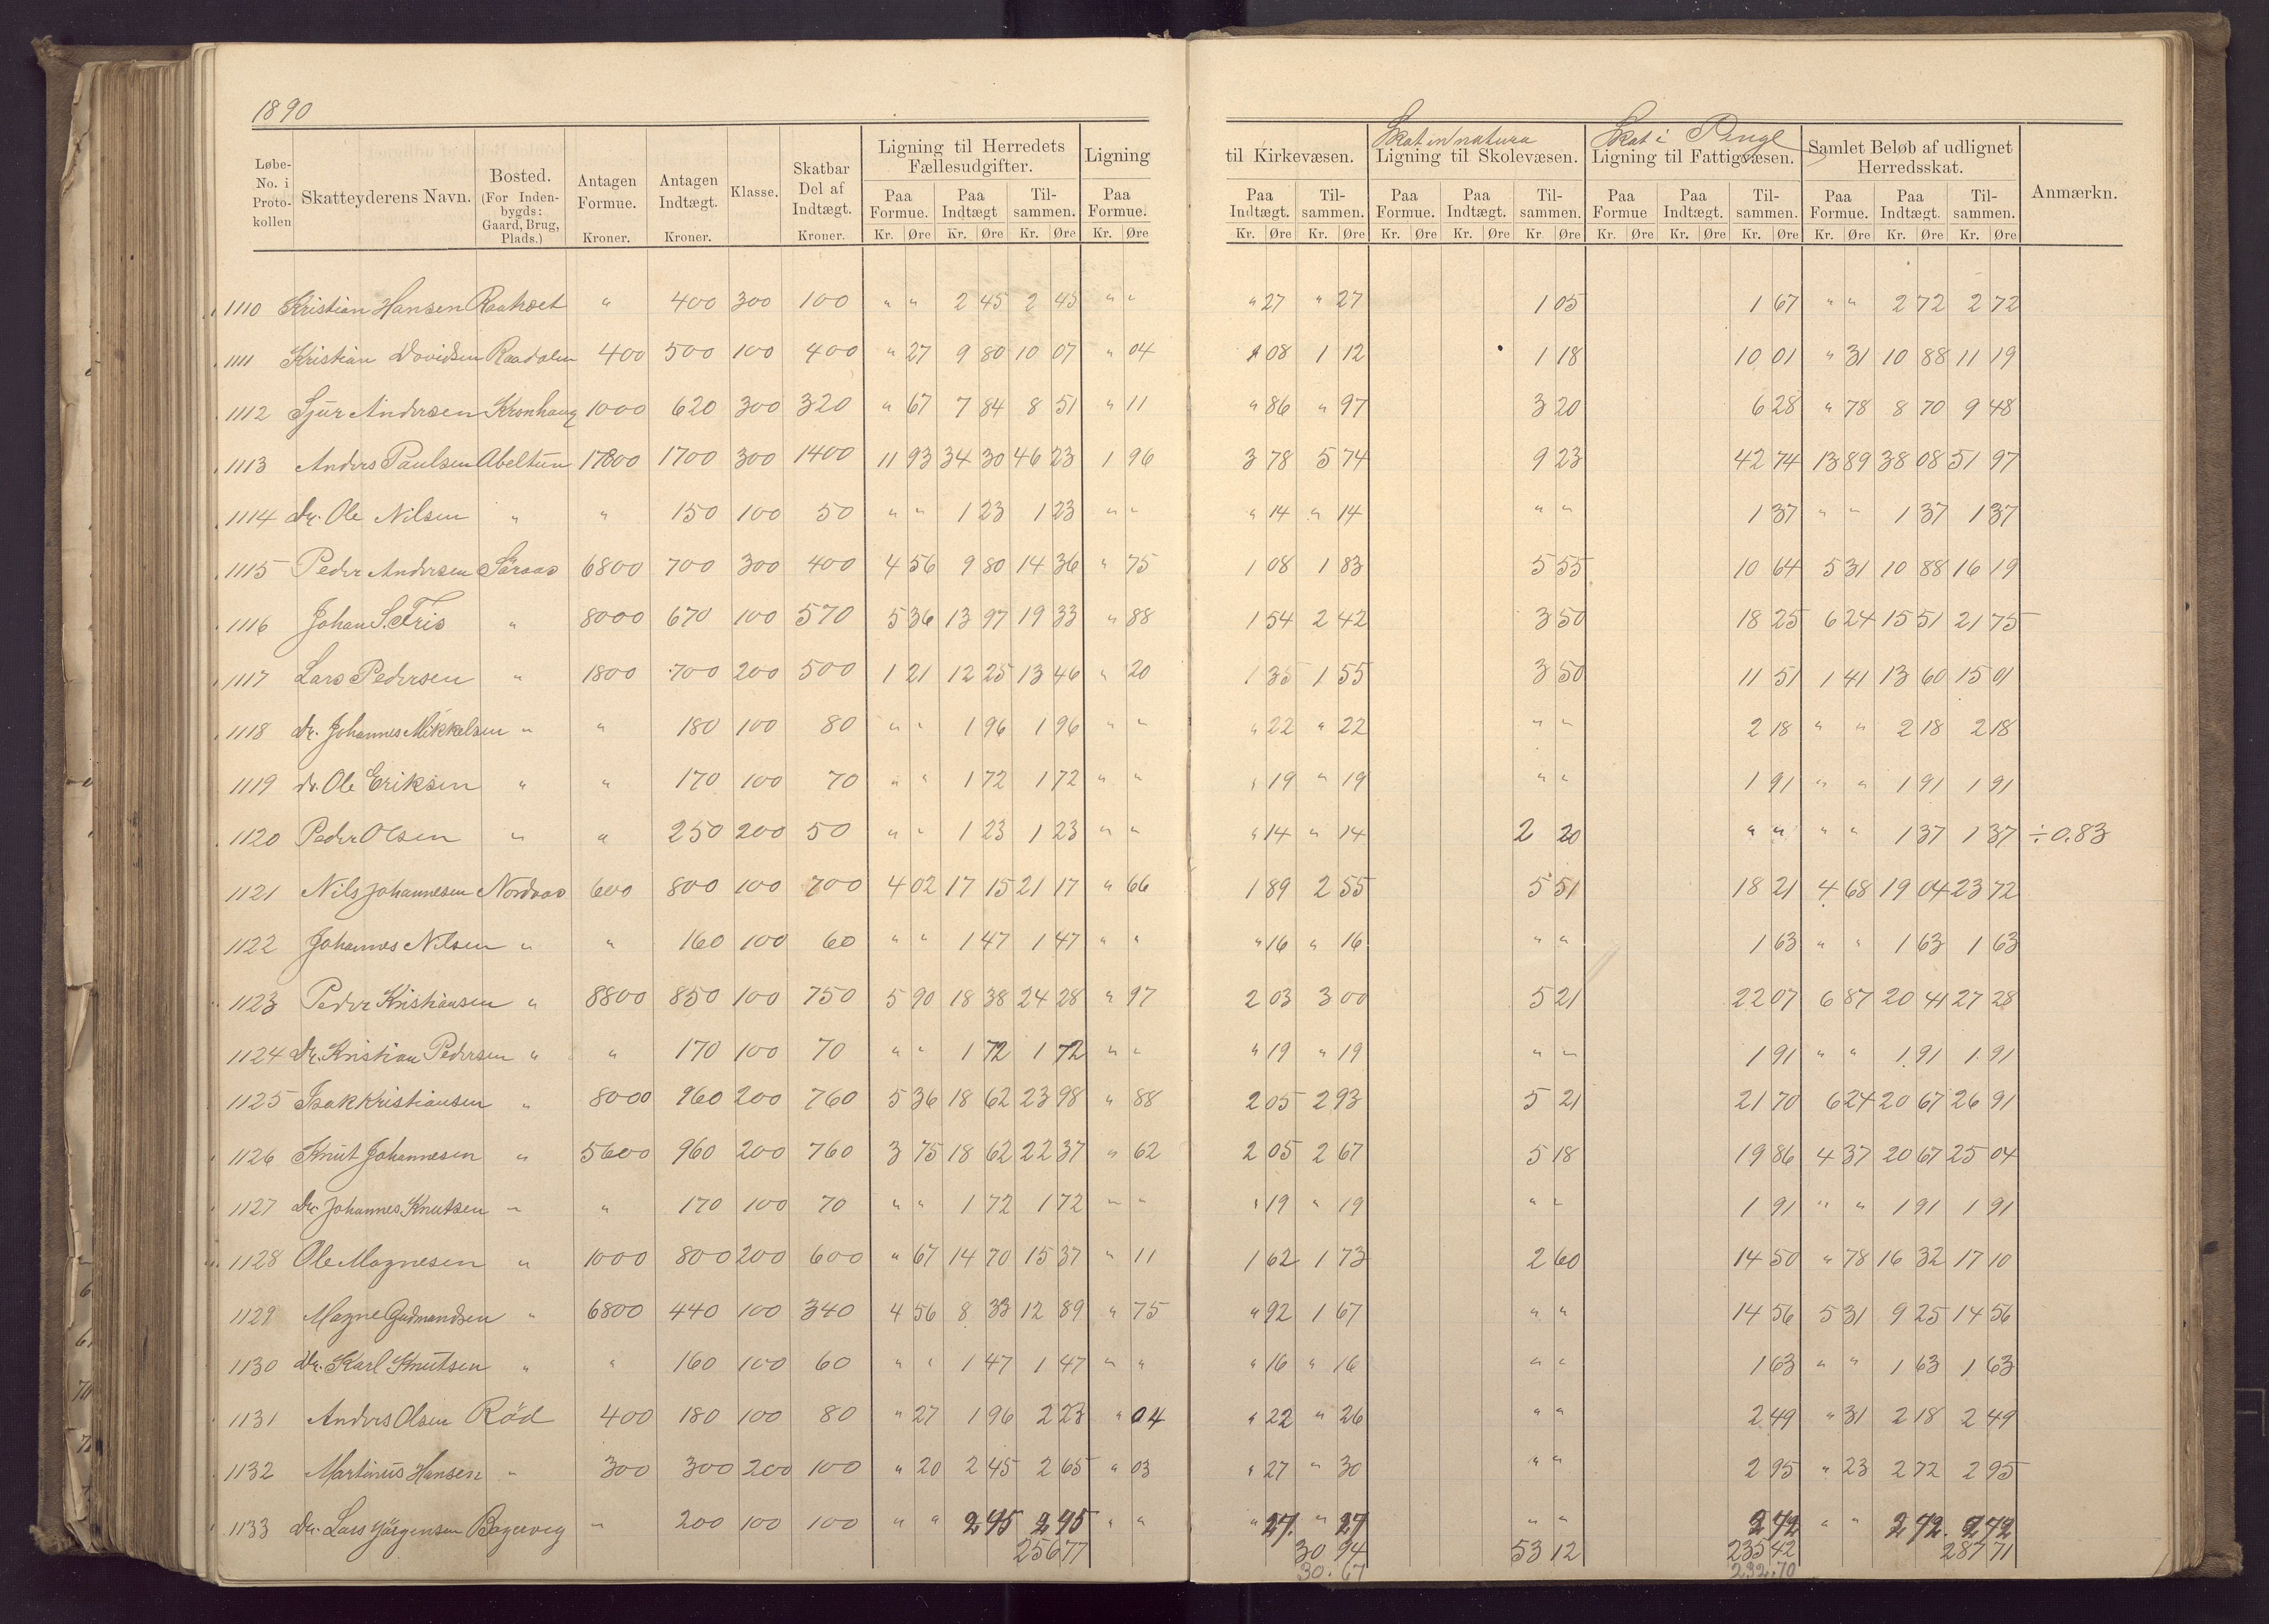 1890
Løbe-No. i Proto-kollen | Skatteyderens Navn. | Bosted. (For Inden-bygds: Gaard, Brug, Plads.) | Antagen Formue. Kroner. | Antagen Indtægt. Kroner. | Klasse. | Skatbar Del af Indtægt. Kroner. | Ligning til Herredets Fællesudgifter. Paa Formue. Kr. Øre | Paa Indtægt Kr. Øre | Til-sammen. Kr. Øre | Ligning Paa Formue. Kr. Øre | til Kirkevæsen. Paa Indtægt. Kr. Øre | Til-sammen. Kr. Øre | Skat in natura Ligning til Skolevæsen. Paa Formue. Kr. Øre | Paa Indtægt. Kr. Øre | Til-sammen. Kr. Øre | Skat i Penge Ligning til Fattigvæsen. Paa Formue Kr. Øre | Paa Indtægt. Kr. Øre | Til-sammen. Kr. Øre | Samlet Beløb af udlignet Herredsskat. Paa Formue. Kr. Øre | Paa Indtægt. Kr. Øre | Til-sammen. Kr. Øre | Anmærkn.
1110 Kristian Hansen " 400 300 100 " " 2 45 2 45 " " " 27 " 27 1 05 1 67 " " 2 72 2 72
1111 Kristian Davidsen Raadalen 400 500 100 400 " 27 9 80 10 07 " 04 1 08 1 12 1 18 10 01 " 31 10 88 11 19
1112 Sjur Andersen Kronhaug 1000 620 300 320 " 67 7 84 8 51 " 11 " 86 " 97 3 20 6 28 " 78 8 70 9 48
1113 Anders Paulsen Abeltun 17800 1700 300 1400 11 93 34 30 46 23 1 96 3 78 5 74 9 23 42 74 13 89 38 08 51 97
1114 dr. Ole Nilsen " " 150 100 50 " " 1 23 1 23 " " " 14 " 14 " " 1 37 " " 1 37 1 37
1115 Peder Andersen Søraas 6800 700 300 400 4 56 9 80 14 36 " 75 1 08 1 83 5 55 10 64 5 31 10 88 16 19
1116 Johan S. Friis " 8000 670 100 570 5 36 13 97 19 33 " 88 1 54 2 42 3 50 18 25 6 24 15 51 21 75
1117 Lars Pedersen " 1800 700 200 500 1 21 12 25 13 46 " 20 1 35 1 55 3 50 11 51 1 41 13 60 15 01
1118 dr. Johannes Mikkelsen " " 180 100 80 " " 1 96 1 96 " " " 22 " 22 " " 2 18 " " 2 18 2 18
1119 dr. Ole Eriksen " " 170 100 70 " " 1 72 1 72 " " " 19 " 19 " " 1 91 " " 1 91 1 91
1120 Peder Olsen " " 250 200 50 " " 1 23 1 23 " " " 14 " 14 2 20 " " " " 1 37 1 37 ÷0.83
1121 Nils Johannesen Nordaas 600 800 100 700 4 02 17 15 21 17 " 66 1 89 2 55 5 51 18 21 4 68 19 04 23 72
1122 Johannes Nilsen " " 160 100 60 " " 1 47 1 47 " " " 16 " 16 " " 1 63 " " 1 63 1 63
1123 Peder Kristiansen " 8800 850 100 750 5 90 18 38 24 28 " 97 2 03 3 00 5 21 22 07 6 87 20 41 27 28
1124 dr. Kristian Pedersen " " 170 100 70 " " 1 72 1 72 " " " 19 " 19 " " 1 91 " " 1 91 1 91
1125 Isak Kristiansen " 8000 960 200 760 5 36 18 62 23 98 " 88 2 05 2 93 5 21 21 70 6 24 20 67 26 91
1126 Knut Johannesen " 5600 960 200 760 3 75 18 62 22 37 " 62 2 05 2 67 5 18 19 86 4 37 20 67 25 04
1127 dr. Johannes Knutsen " " 170 100 70 " " 1 72 1 72 " " " 19 " 19 " " 1 91 " " 1 91 1 91
1128 Ole Magnesen " 1000 800 200 600 " 67 14 70 15 37 " 11 1 62 1 73 2 60 14 50 " 78 16 32 17 10
1129 Magne Gudmundsen " 6800 440 100 340 4 56 8 33 12 89 " 75 " 92 1 67 " " 14 56 5 31 9 25 14 56
1130 dr. Karl Knutsen " " 160 100 60 " " 1 47 1 47 " " " 16 " 16 " " 1 63 " " 1 63 1 63
1131 Anders Olsen Röd 400 180 100 80 " 27 1 96 2 23 " 04 " 22 " 26 " " 2 49 " 31 2 18 2 49
1132 Martinus Hansen " 300 300 200 100 " 20 2 45 2 65 " 03 " 27 " 30 " " 2 95 " 23 2 72 2 95
1133 dr. Lars Jörgensen " 200 100 100 " " 2 45 2 45 " " " 27 " 27 " " 2 72 " " 2 72 2 72
256 77 30 94 53 12 235 42 287 71
30.67 232.70